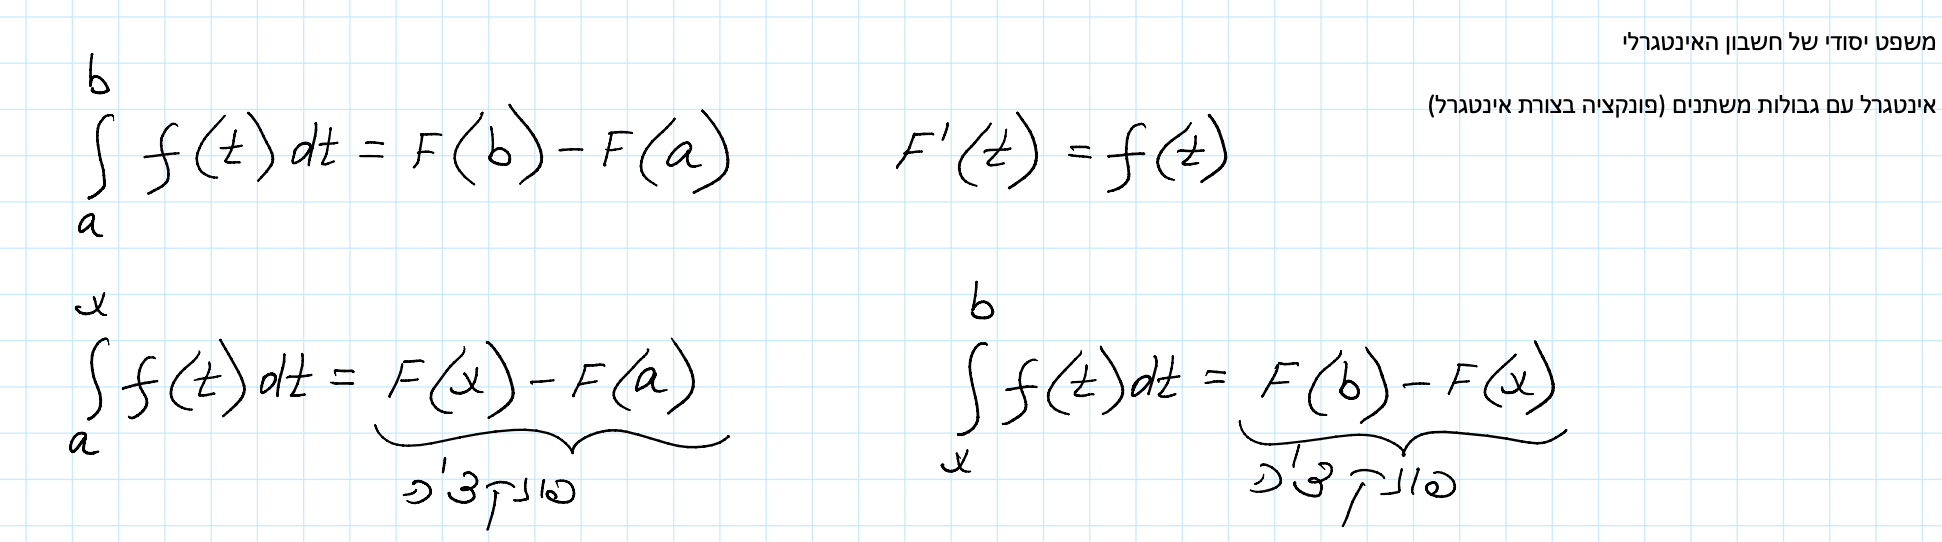 משפט יסודי של חשבון האינטגרלי
אינטגרל עם גבולות משתנים (פונקציה בצורת אינטגרל)
b
∫ f(t) dt = F(b) - F(a)    F'(t) = f(t)
a
x
∫ f(t) dt = F(x) - F(a)
a
פונקציה
b
∫ f(t) dt = F(b) - F(x)
x
פונקציה